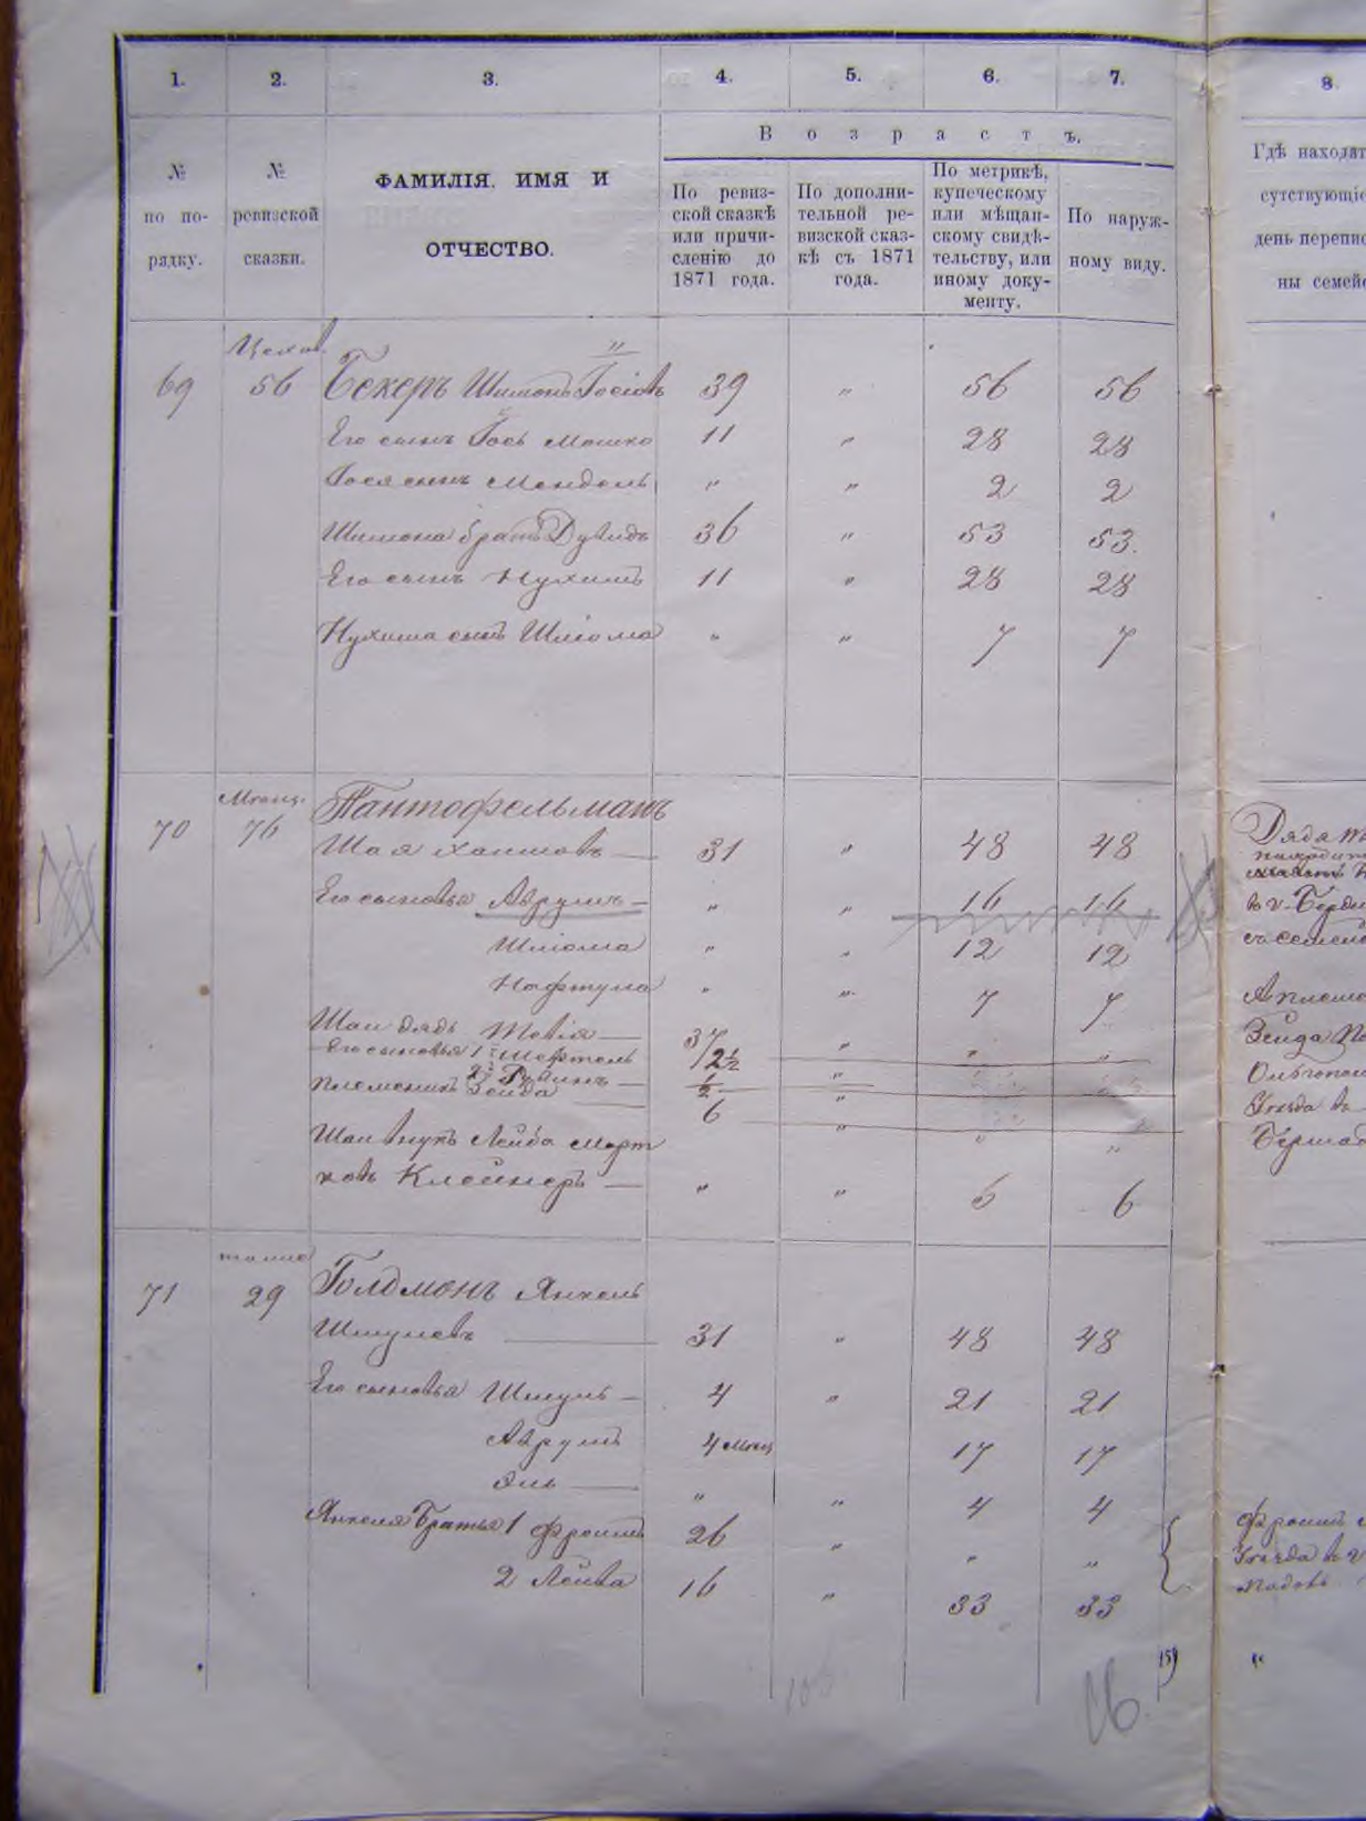 1. 2. 3. 4. 5. 6. 7. 8.
Возрастъ.
№ по порядку.
№ ревизской сказки.
ФАМИЛІЯ. ИМЯ И
ОТЧЕСТВО.
По ревиз-
ской сказкѣ
или причи-
сленію до
1871 года.
По дополни-
тельной ре-
визской сказ-
кѣ съ 1871
года.
По метрикѣ,
купеческому
или мѣщан-
скому свидѣ-
тельству, или
иному доку-
менту.
По наруж-
ному виду.
Гдѣ находят
сутствующіе
день перепис
ны семей
69 56 Бекеръ Шимонъ Іосіовъ 39 " 56 56
Его сынъ Іось Мошко 11 " 28 28
Іося сынъ Мендель " " 2 2
Шимона братъ Дувидъ 36 " 53 53.
Его сынъ Нухимъ 11 " 28 28
Нухима сынъ Шліома " " 7 7
Мѣщ.
70 76 Пантофельманъ
Шая Хаимовъ — 31 " 48 48
Его сыновья Аврумъ — " " 16 16
Шліома " " 12 12
Нафтула " " 7 7
Шаи дядь Товія — 37 " " "
Его сыновья 1й Шефтель 2½ "
2й Рувинъ — ½ "
Племенникъ Зейда 6 " " "
Шаи внукъ Лейба Морт
ковъ Клейнеръ — " " 6 6
тоже
71 29 Голдманъ Янкель
Шмулевъ 31 " 48 48
Его сыновья Шмуль — 4 " 21 21
Аврумъ 4 мѣсяц 17 17
Эль — " " 4 4
Янкеля братья 1 Фроимъ 26 " " "
2 Лейба 16 " 33 33
Дядя
в г. Берди
съ семей
Зейда
Бершад
Фроимъ